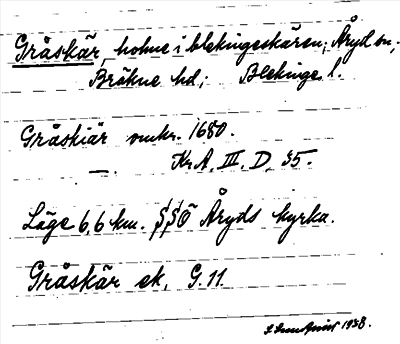 Gråskär, holme i blekingeskären; Åryd sn;
Bräkne hd; Blekinge l.
Gråskiär omkr. 1680.
— . Kr.A, III, D, 35.
Läge 6,6 km. SSÖ Åryds kyrka.
Gråskär ek, G.11.
1938.